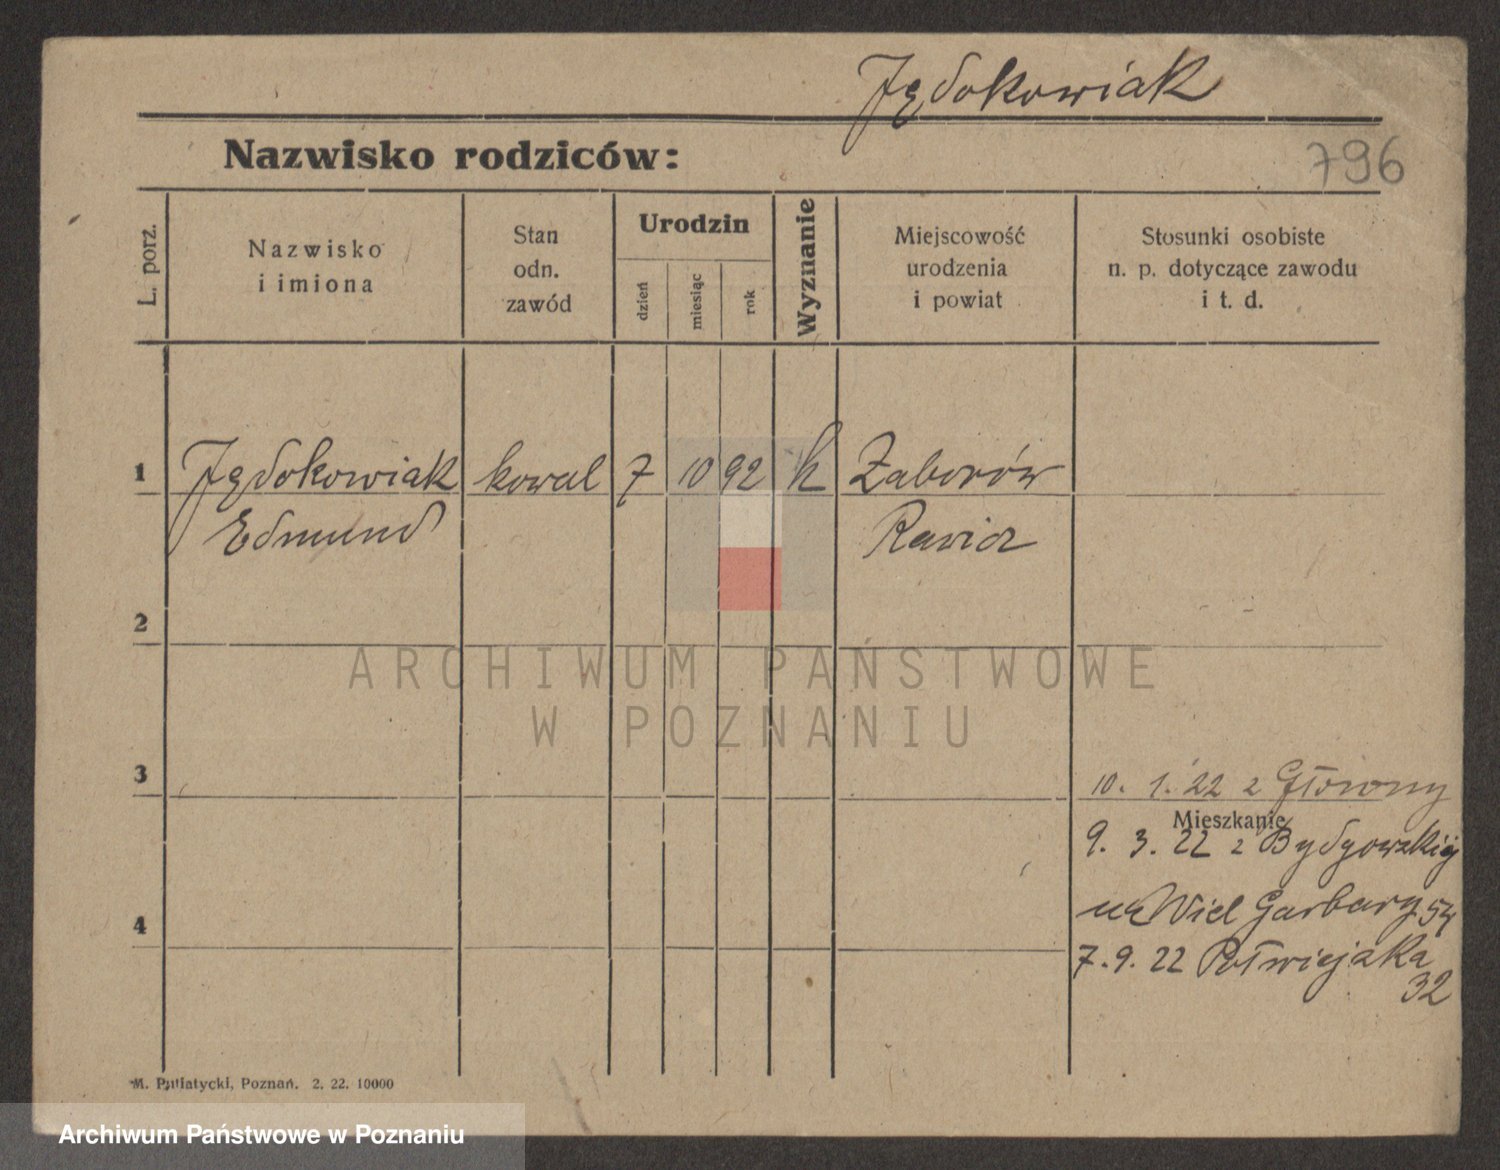 Jędokowiak
Nazwisko rodziców:
796
L. porz.
Nazwisko
i imiona
Stan
odn.
zawód
Urodzin
dzień
miesiąc
rok
Wyznanie
Miejscowość
urodzenia
i powiat
Stosunki osobiste
n. p. dotyczące zawodu
i t. d.
1
Jędokowiak kowal 7 10 92 k Zaborów
Edmund Rawicz
2
ARCHIWUM PAŃSTWOWE
W POZNANIU
3
10. 1. 22 z Główny
Mieszkanie
9. 3. 22 z Bydgowskiej
4
na Wiel Garbary 54
7. 9. 22 Półwiejska
32
M. Putiatycki, Poznań. 2. 22. 10000
Archiwum Państwowe w Poznaniu